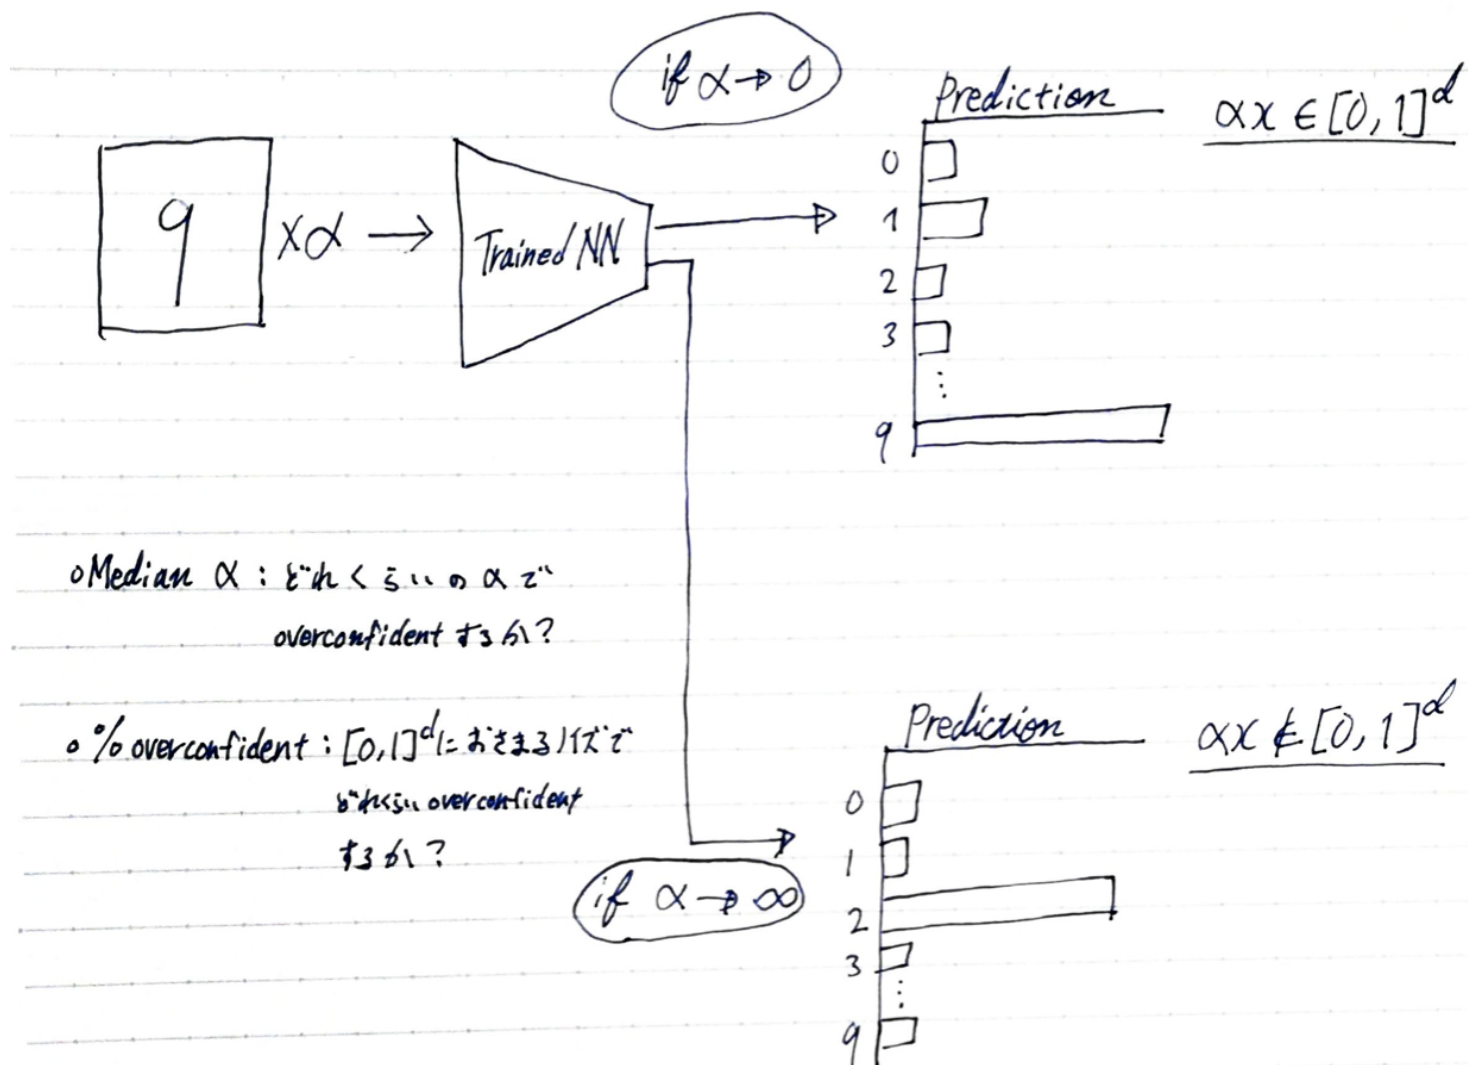 if α → 0
Prediction
αx ∈ [0, 1]^d
9
xα →
Trained NN
0
1
2
3
⋮
9
○Median α : どれくらいのαで
overconfident するか?
○% overconfident : [0,1]^dにおさまるノイズで
どれくらい overconfident
するか?
if α → ∞
Prediction
αx ∉ [0, 1]^d
0
1
2
3
⋮
9